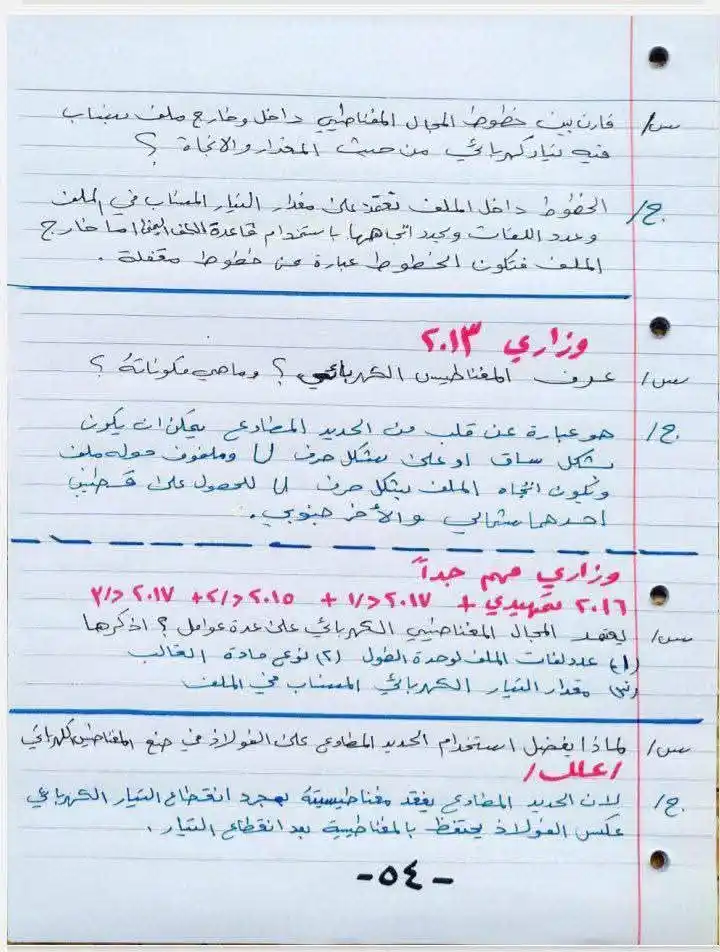 س/ قارن بين خطوط المجال المغناطيسي داخل وخارج ملف ينساب
فيه تيار كهربائي من حيث المقدار والاتجاة ؟
ج/ الخطوط داخل الملف تعتمد على مقدار التيار المنساب في الملف
وعدد اللفات ويحدد اتجاهها باستخدام قاعدة الكف اليمنى اما خارج
الملف فتكون الخطوط عبارة عن خطوط مقفلة .
وزاري ٢٠١٣
س/ عرف المغناطيس الكهربائي ؟ وماهي مكوناتهُ ؟
ج/ هو عبارة عن قلب من الحديد المطاوع يمكن ان يكون
بشكل ساق او على شكل حرف U وملفوف حوله ملف
ويكون اتجاه الملف بشكل حرف U للحصول على قطبين
احدهما شمالي والأخر جنوبي .
وزاري مهم جداً
٢٠١٦ تمهيدي + ٢٠١٧ د/١ + ٢٠١٥ د/٢ + ٢٠١٧ د/٣
س/ يعتمد المجال المغناطيسي الكهربائي على عدة عوامل ؟ اذكرها
(١) عدد لفات الملف لوحدة الطول (٢) نوع مادة القالب
(٣) مقدار التيار الكهربائي المنساب في الملف
س/ لماذا يفضل استخدام الحديد المطاوع على الفولاذ في صنع المغناطيس الكهربائي
/علل/
ج/ لان الحديد المطاوع يفقد مغناطيسيته بمجرد انقطاع التيار الكهربائي
عكس الفولاذ يحتفظ بالمغناطيسية بعد انقطاع التيار .
-٥٤-